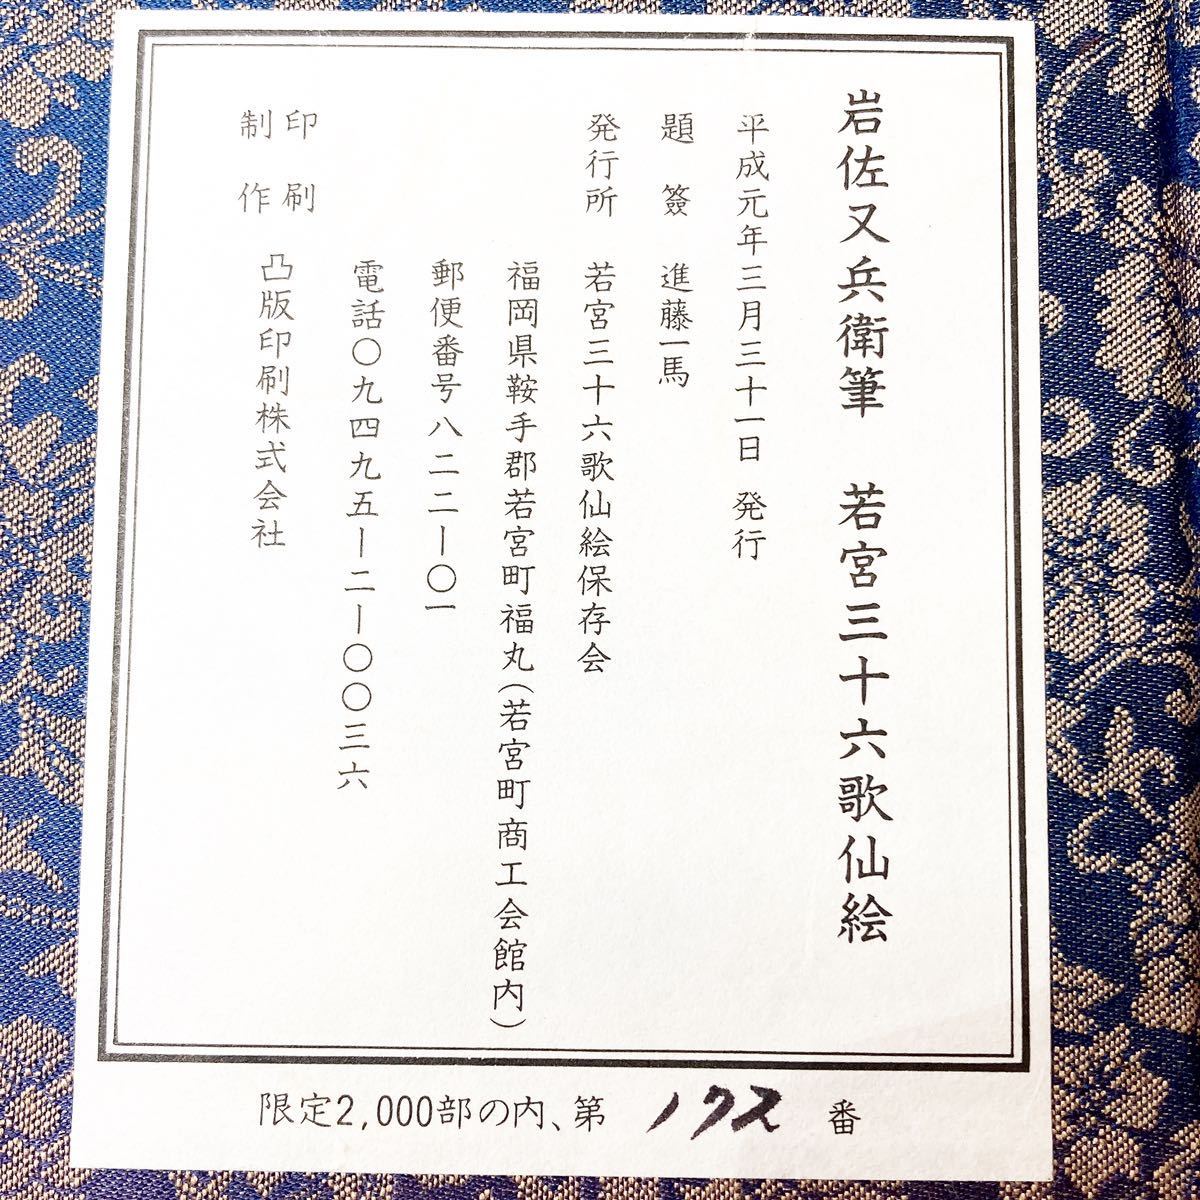 岩佐又兵衛筆　若宮三十六歌仙絵
平成元年三月三十一日　発行
題　簽　進藤一馬
発行所　若宮三十六歌仙絵保存会
福岡県鞍手郡若宮町福丸（若宮町商工会館内）
郵便番号八二二ー〇一
電話〇九四九五ー二ー〇〇三六
印　刷
制　作
凸版印刷株式会社
限定2,000部の内、第 172 番